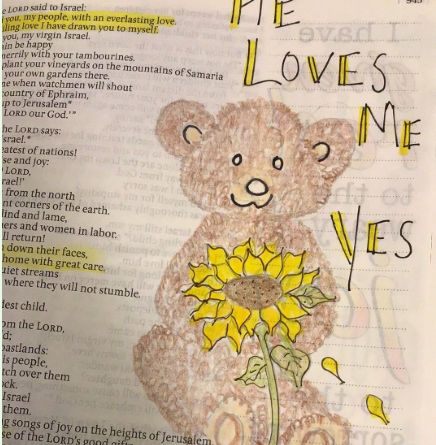 he LORD said to Israel:
you, my people, with an everlasting love.
iling love I have drawn you to myself.
you, my virgin Israel.
ain be happy
merrily with your tambourines.
plant your vineyards on the mountains of Samaria
your own gardens there.
me when watchmen will shout
country of Ephraim,
up to Jerusalem
LORD our God.'"
he LORD says:
srael.
eatest of nations!
se and joy:
LORD,
rael!'
from the north
nt corners of the earth.
lind and lame,
ers and women in labor.
ll return!
down their faces,
home with great care.
uiet streams
where they will not stumble.
dest child.
om the LORD,
d;
oastlands:
is people,
tch over them
ock.
Israel
them.
g songs of joy on the heights of Jerusalem.
se of the LORD's good gifts
HE
LOVES
ME
YES